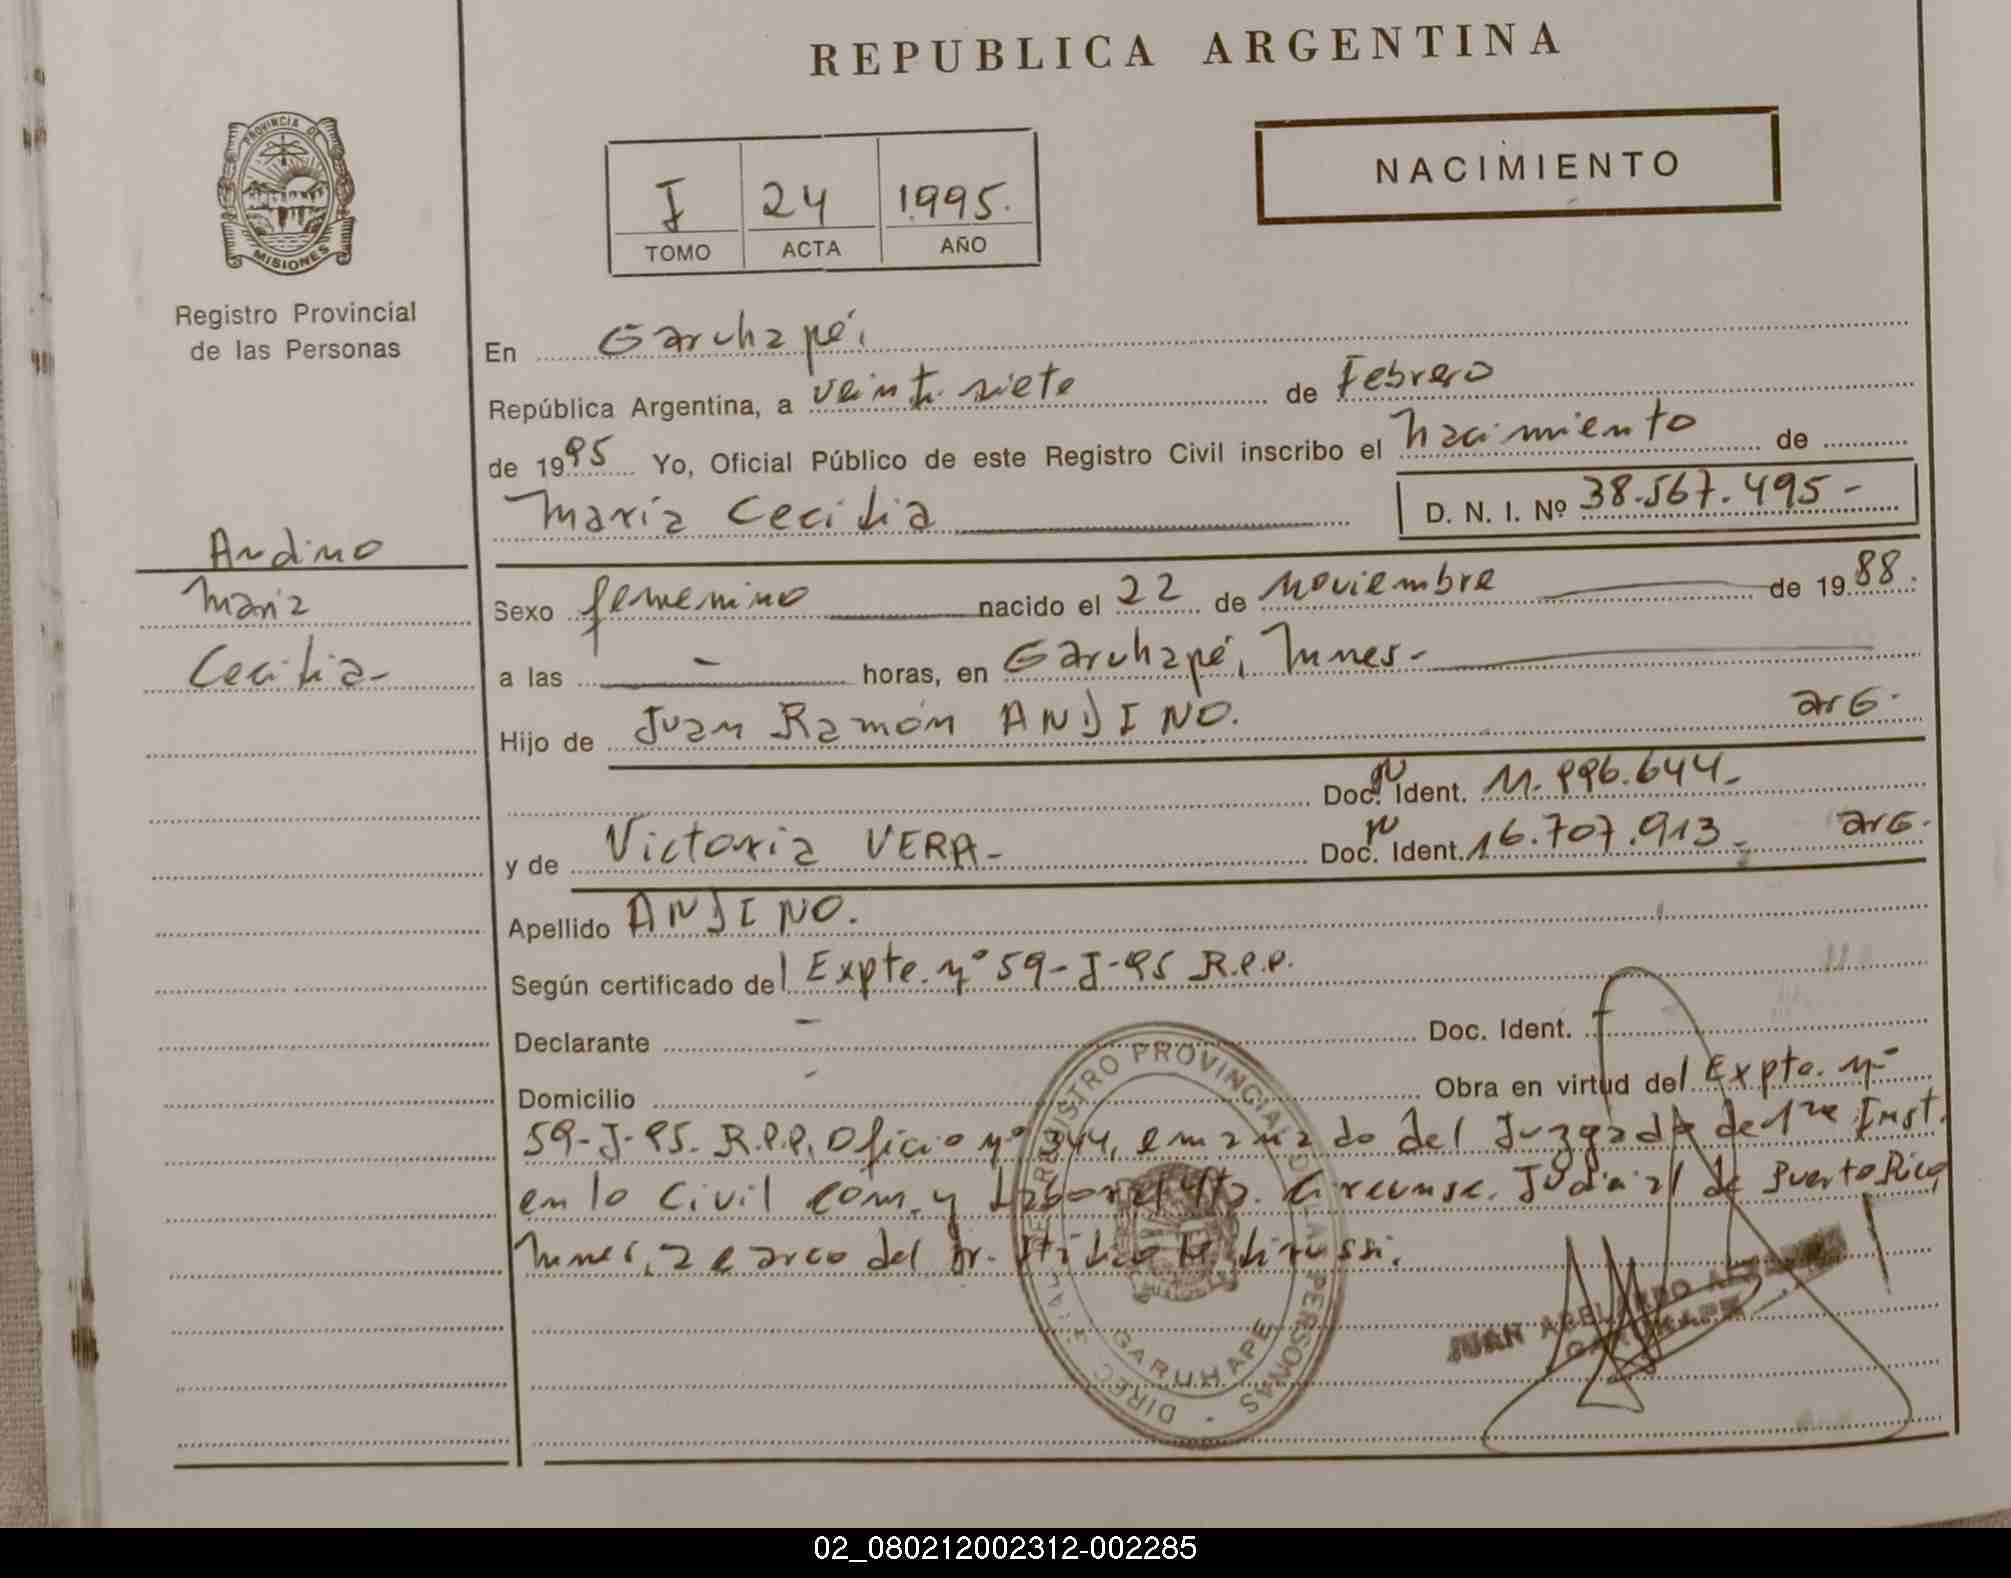 REPUBLICA ARGENTINA
PROVINCIA DE
MISIONES
Registro Provincial
de las Personas
I 24 1995.
TOMO ACTA AÑO
NACIMIENTO
En Garuhapé,
República Argentina, a veintisiete de Febrero
de 1995 Yo, Oficial Público de este Registro Civil inscribo el nacimiento de
María Cecilia
D. N. I. Nº 38.567.495-
Andino
María
Cecilia-
Sexo femenino nacido el 22 de noviembre de 1988.
a las - horas, en Garuhapé, Mnes-
Hijo de Juan Ramón ANDINO. arG.
Doc. Ident. 11.996.644-
y de Victoria VERA- Doc. Ident. 16.707.913- arG.
Apellido ANDINO.
Según certificado del Expte. nº 59-J-95 R.P.P.
Declarante - Doc. Ident. -
Domicilio - Obra en virtud del Expte. nº
59-J-95. R.P.P. Oficio nº 344, emanado del Juzgado de 1ra Inst.
en lo Civil Com. y Laboral 4ta. Circunsc. Judicial de Puerto Rico,
Mnes, a cargo del Dr.
REGISTRO PROVINCIAL DE LAS PERSONAS
DIREC. GRAL.
GARUHAPE
JUAN ABELARDO
GARUHAPE
02_080212002312-002285